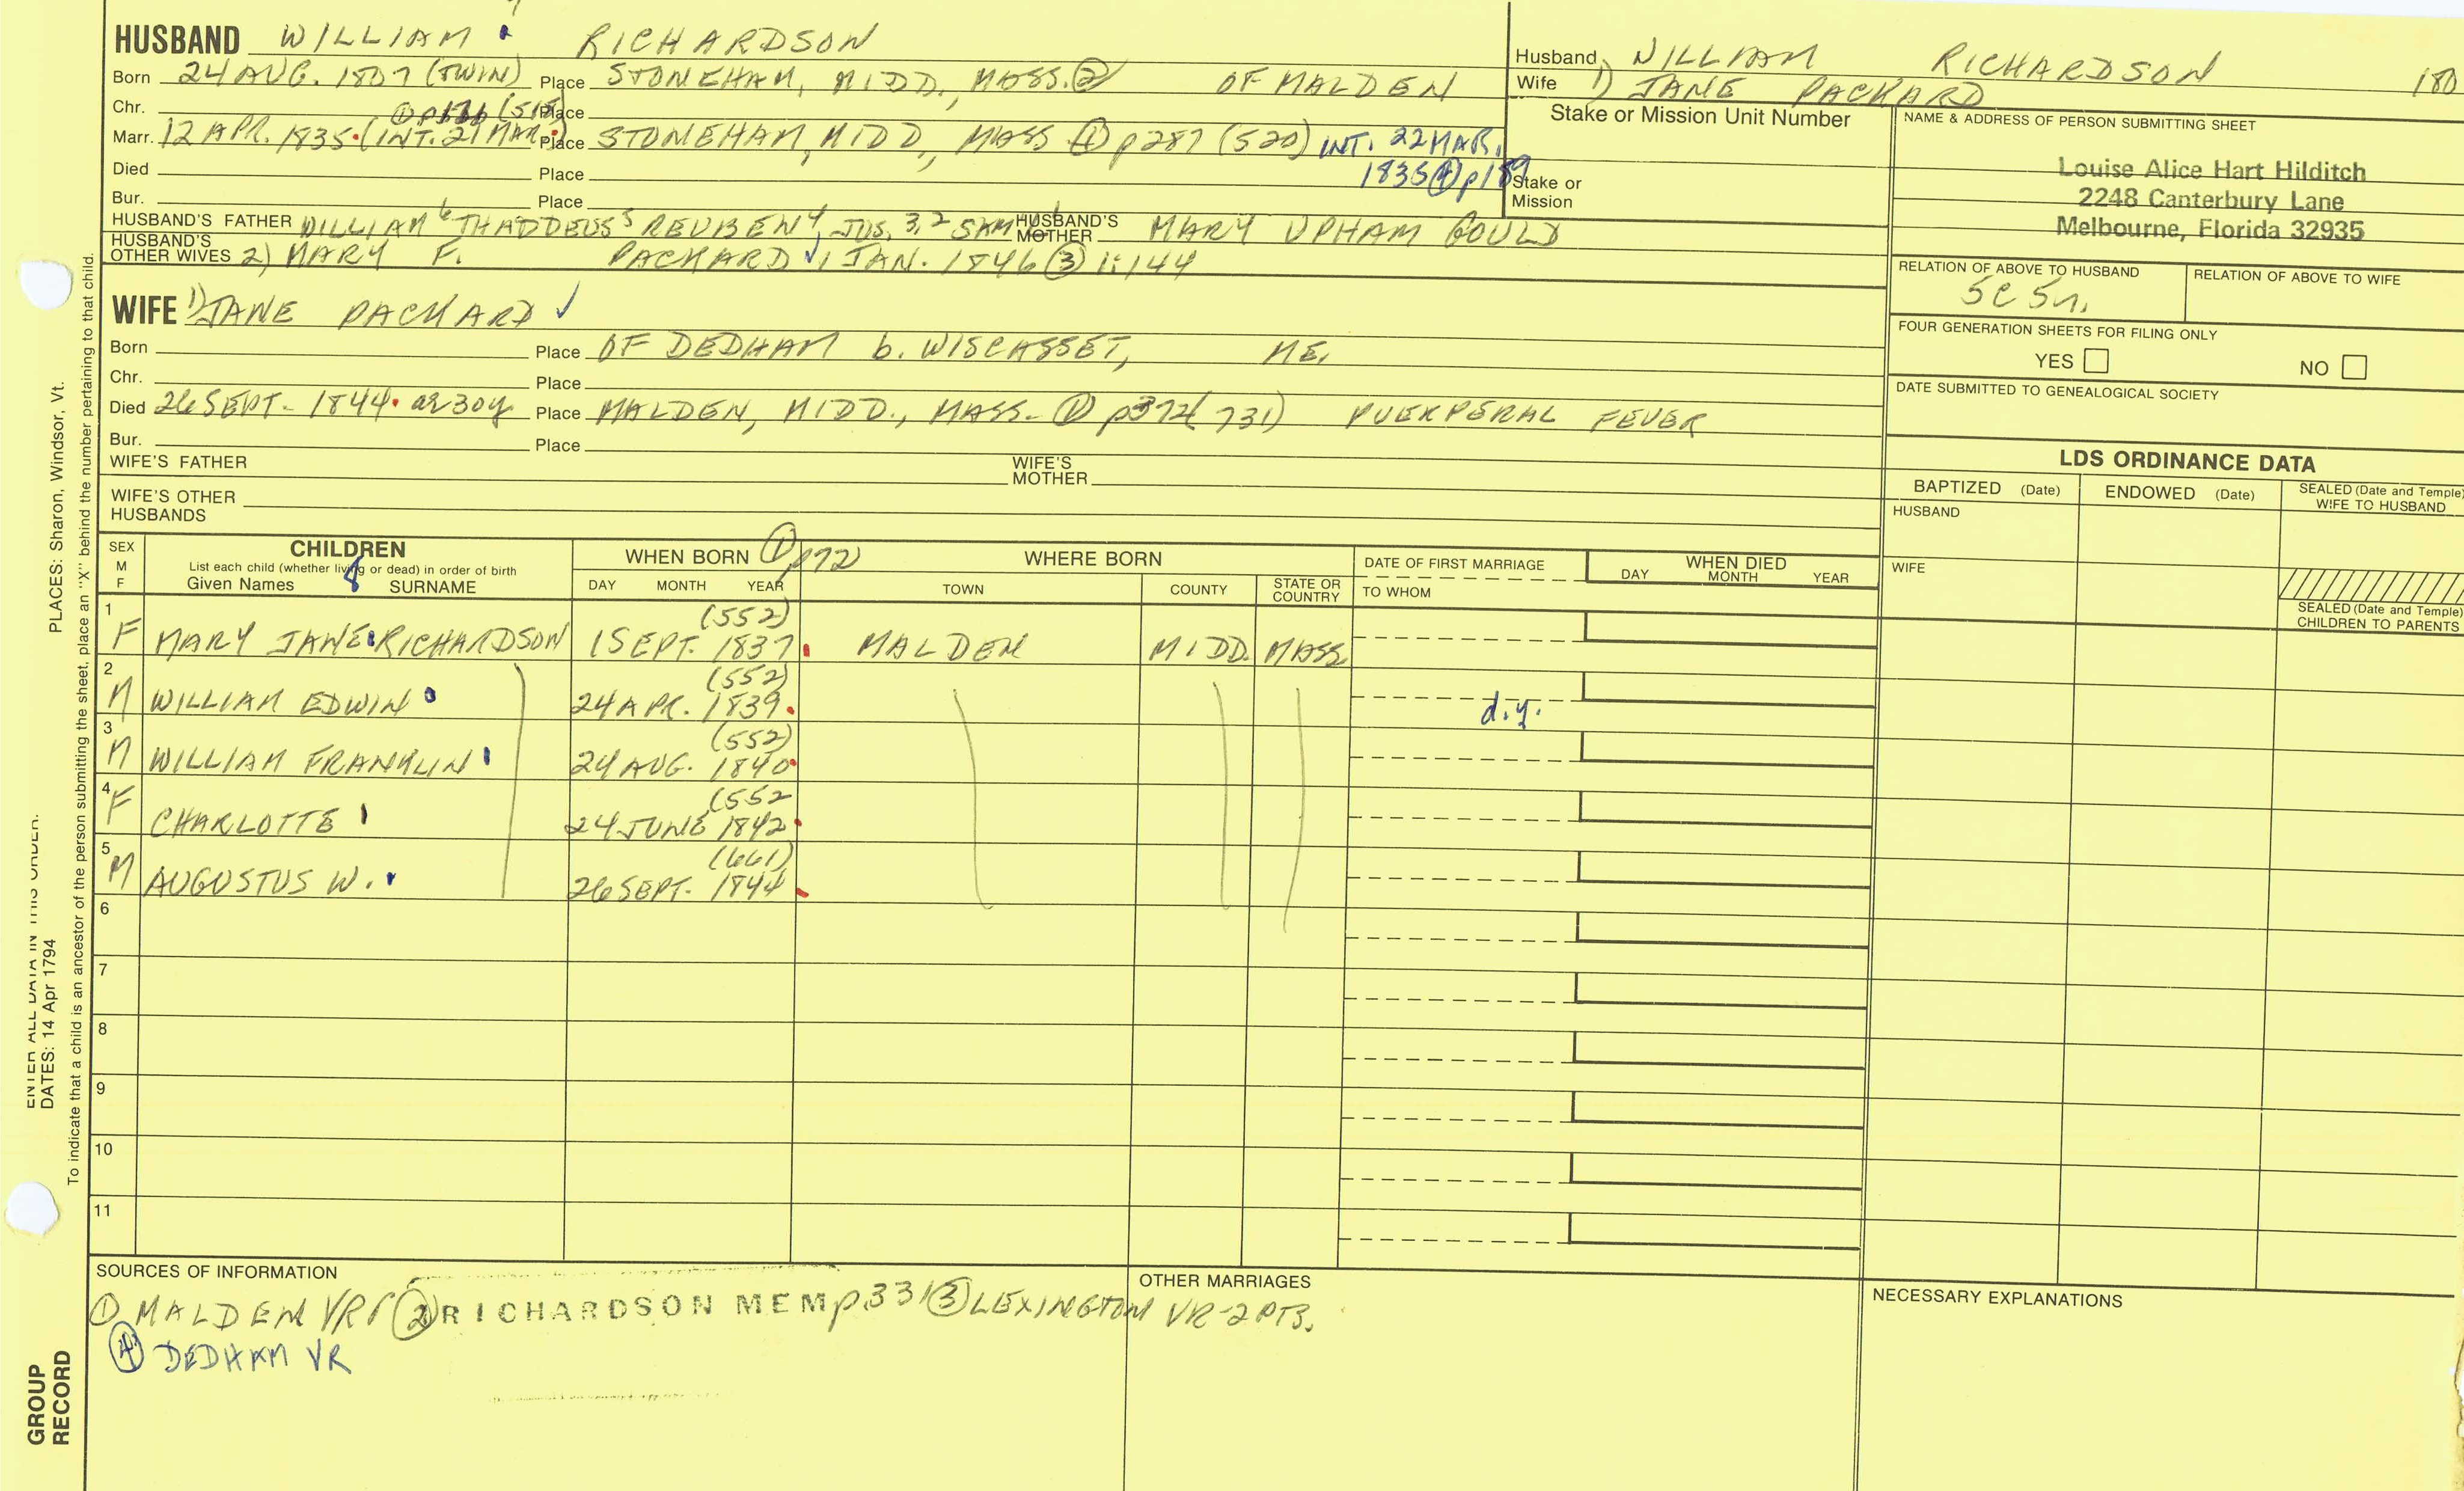 HUSBAND WILLIAM RICHARDSON
Born 24 AUG. 1807 (TWIN) Place STONEHAM, MIDD., MASS. ② OF MALDEN
Chr. Place
Marr. 12 APR. 1835 (INT. 21 MAR.) Place STONEHAM, MIDD., MASS ① p287 (520) INT. 22 MAR.
1835 ④ p189
Died Place
Bur. Place
HUSBAND'S FATHER WILLIAM 6 THADDEUS 5 REUBEN 4 JOS. 3,2 HUSBAND'S MOTHER MARY UPHAM GOULD
HUSBAND'S OTHER WIVES 2) MARY F. PACKARD √, 1 JAN. 1846 ③ 1:144
WIFE 1) JANE PACKARD √
Born Place OF DEDHAM b. WISCASSET, ME.
Chr. Place
Died 26 SEPT. 1844 ae 30y Place MALDEN, MIDD., MASS. ① p372 (731) PUERPERAL FEVER
Bur. Place
WIFE'S FATHER WIFE'S MOTHER
WIFE'S OTHER HUSBANDS
Husband WILLIAM RICHARDSON 180
Wife 1) JANE PACKARD
Stake or Mission Unit Number
Stake or Mission
NAME & ADDRESS OF PERSON SUBMITTING SHEET
Louise Alice Hart Hilditch
2248 Canterbury Lane
Melbourne, Florida 32935
RELATION OF ABOVE TO HUSBAND RELATION OF ABOVE TO WIFE
5C 5r.
FOUR GENERATION SHEETS FOR FILING ONLY
YES NO
DATE SUBMITTED TO GENEALOGICAL SOCIETY
LDS ORDINANCE DATA
BAPTIZED (Date) ENDOWED (Date) SEALED (Date and Temple) WIFE TO HUSBAND
HUSBAND
WIFE
SEALED (Date and Temple)
CHILDREN TO PARENTS
SEX M F CHILDREN WHEN BORN ① p72 WHERE BORN DATE OF FIRST MARRIAGE WHEN DIED
List each child (whether living or dead) in order of birth
Given Names 8 SURNAME DAY MONTH YEAR TOWN COUNTY STATE OR COUNTRY TO WHOM DAY MONTH YEAR
1 F MARY JANE RICHARDSON (552) 1 SEPT. 1837 MALDEN MIDD. MASS
2 M WILLIAM EDWIN (552) 24 APR. 1839 d.y.
3 M WILLIAM FRANKLIN (552) 24 AUG. 1840
4 F CHARLOTTE (552 24 JUNE 1842
5 M AUGUSTUS W. (661) 26 SEPT. 1844
6
7
8
9
10
11
SOURCES OF INFORMATION
① MALDEN VR ② RICHARDSON MEM p331 ③ LEXINGTON VR-2 PTS.
④ DEDHAM VR
OTHER MARRIAGES
NECESSARY EXPLANATIONS
PLACES: Sharon, Windsor, Vt.
ENTER ALL DATA IN THIS ORDER:
DATES: 14 Apr 1794
To indicate that a child is an ancestor of the person submitting the sheet, place an "X" behind the number pertaining to that child.
GROUP
RECORD